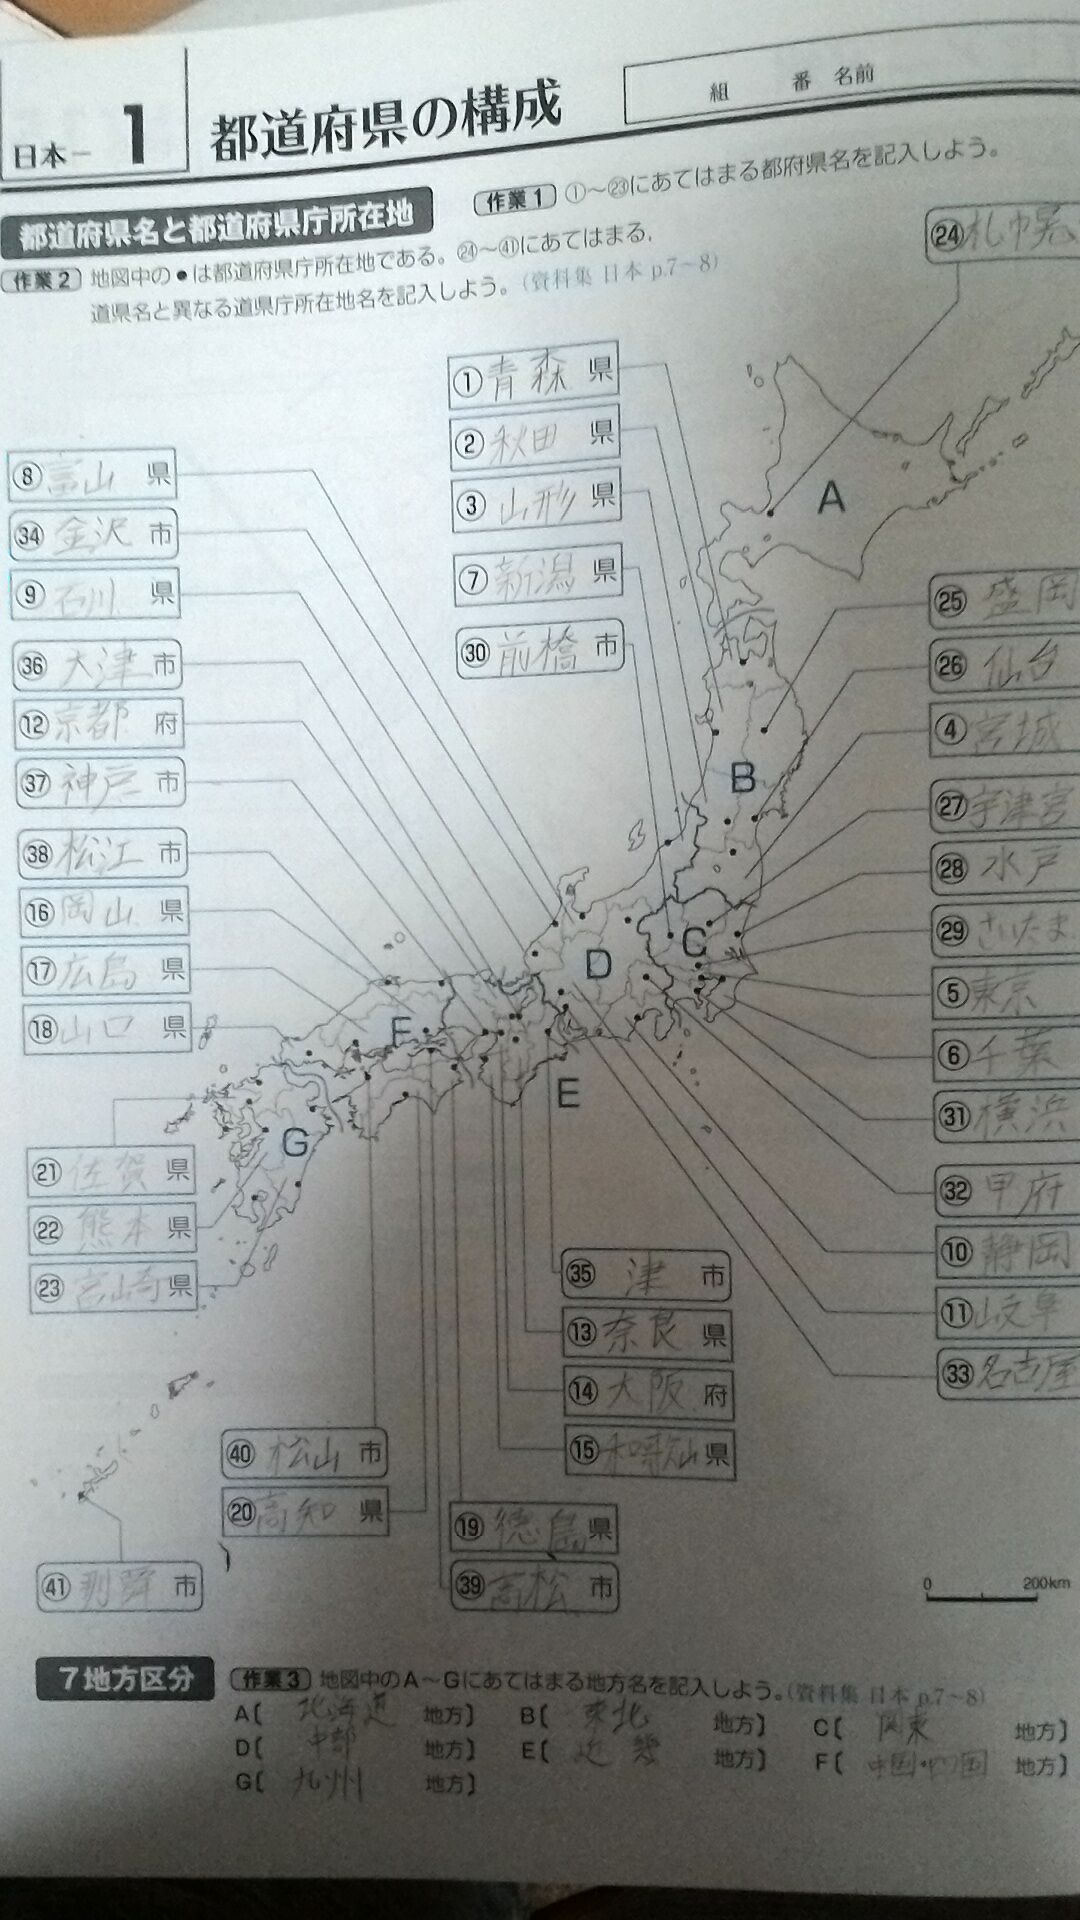 日本－ 1 都道府県の構成
組 番 名前
都道府県名と都道府県庁所在地
作業1 ①～㉓にあてはまる都府県名を記入しよう。
作業2 地図中の●は都道府県庁所在地である。㉔～㊶にあてはまる,
道県名と異なる道県庁所在地名を記入しよう。(資料集 日本 p.7～8)
㉔札幌
①青森 県
②秋田 県
③山形 県
⑦新潟 県
㉚前橋 市
⑧富山 県
㉞金沢 市
⑨石川 県
㊱大津 市
⑫京都 府
㊲神戸 市
㊳松江 市
⑯岡山 県
⑰広島 県
⑱山口 県
㉕盛岡
㉖仙台
④宮城
㉗宇津宮
㉘水戸
㉙さいたま
⑤東京
⑥千葉
㉛横浜
㉜甲府
⑩静岡
⑪岐阜
㉝名古屋
A
B
C
D
E
F
G
㉑佐賀 県
㉒熊本 県
㉓宮崎 県
㉟津 市
⑬奈良 県
⑭大阪 府
⑮和歌山 県
㊵松山 市
⑳高知 県
⑲徳島 県
㊴高松 市
㊶那覇 市
0 200km
7地方区分
作業3 地図中のA～Gにあてはまる地方名を記入しよう。(資料集 日本 p.7～8)
A〔 北海道 地方〕 B〔 東北 地方〕 C〔 関東 地方〕
D〔 中部 地方〕 E〔 近畿 地方〕 F〔 中国・四国 地方〕
G〔 九州 地方〕